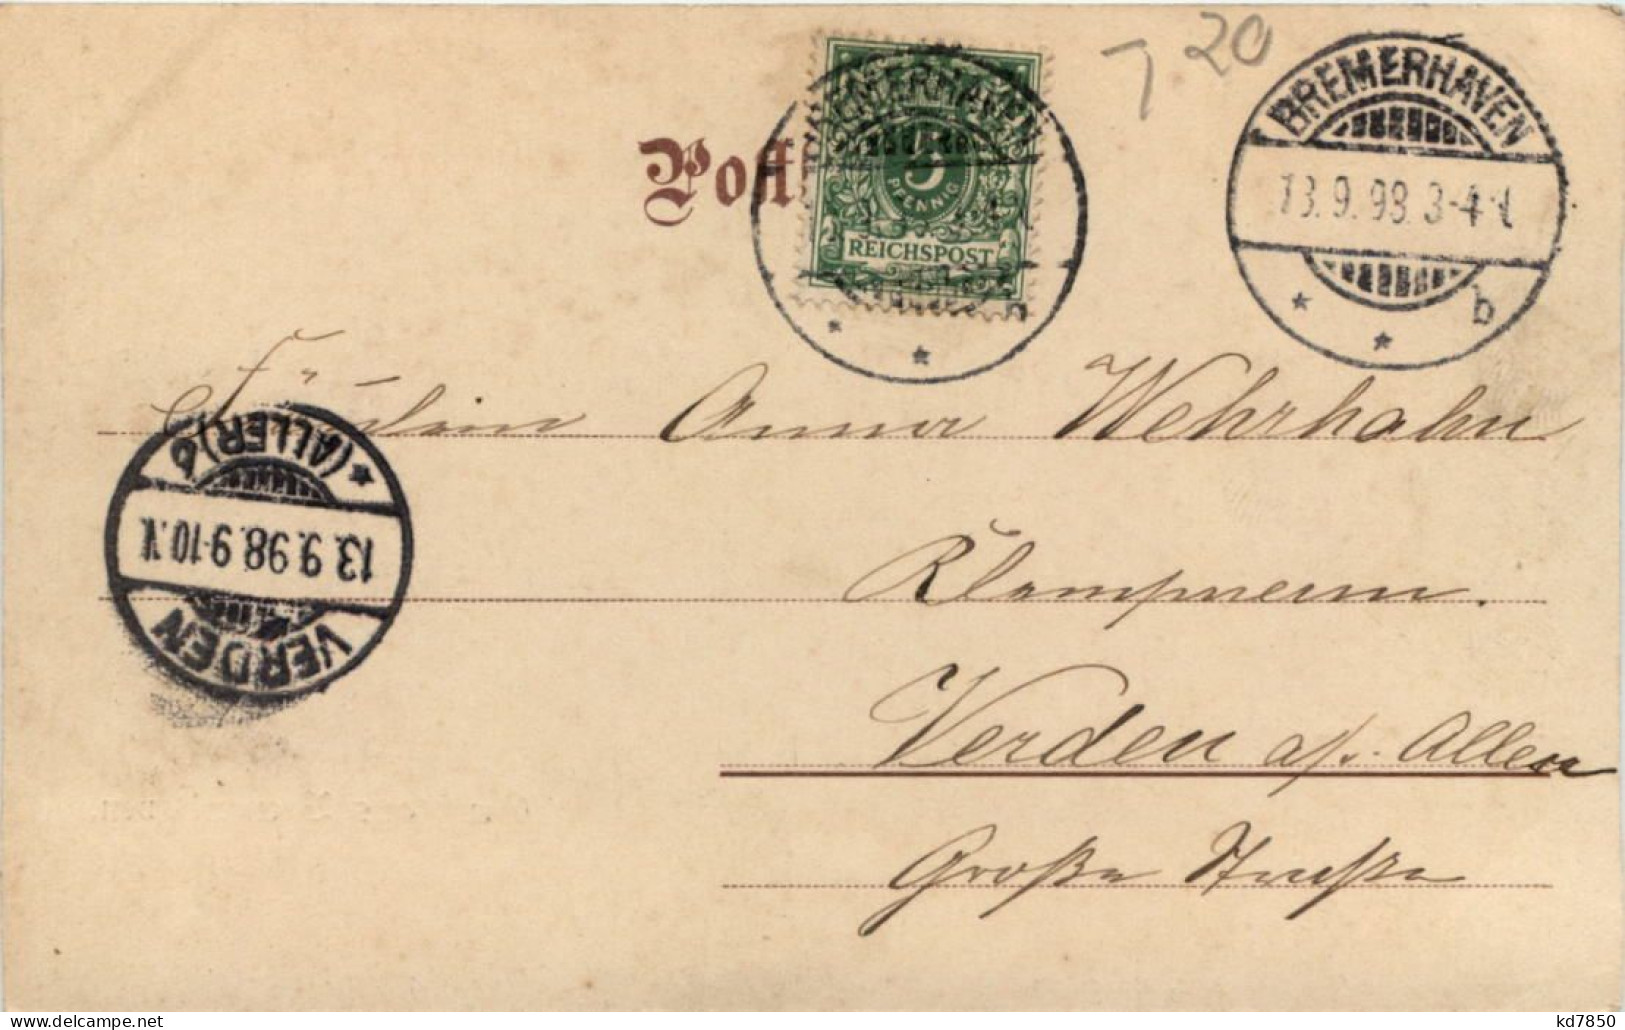 7 20
BREMERHAVEN
13.9.98. 3-4 N
b
Post
BREMERHAVEN
5
PFENNIG
REICHSPOST
Fräulein Anna Wehrhahn
VERDEN
13.9.98.9-10.V.
(ALLER)6
Verden a/. Aller
Große Straße
kd7850